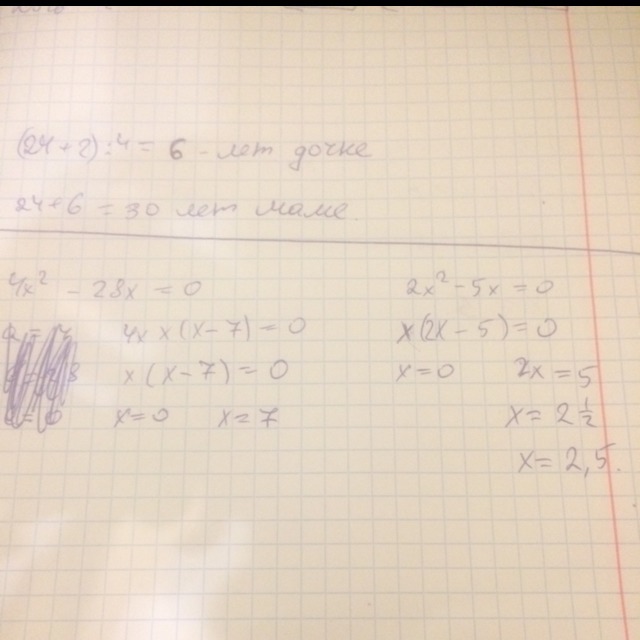 (24+2):4= 6 - лет дочке
24+6 = 30 лет маме.
4x² - 28x = 0
4x x (x-7) = 0
x (x-7) = 0
x=0 x=7
2x² - 5x = 0
x(2x-5) = 0
x=0 2x=5
x= 2 1/2
x= 2,5.